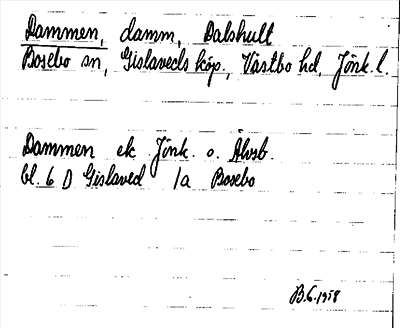 Dammen, damm, Dalshult
Bosebo sn, Gislaveds köp., Västbo hd, Jönk. l.
Dammen ek Jönk. o. Älvsb.
bl. 6 D Gislaved 1a Bosebo
B.G. 1958